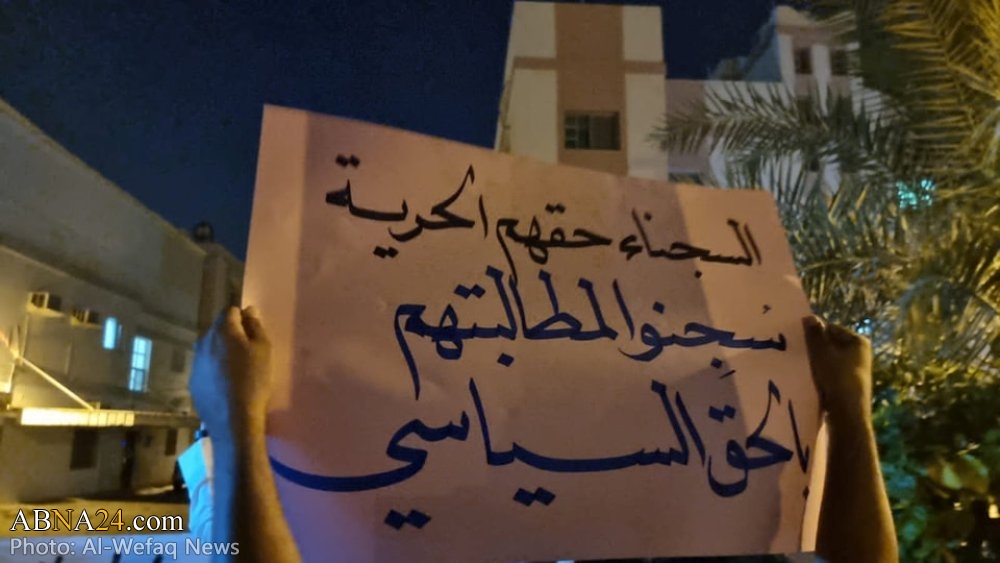 السجناء حقهم الحرية
سُجنوا لمطالبتهم
بالحقَ السياسي
ABNA24.com
Photo: Al-Wefaq News